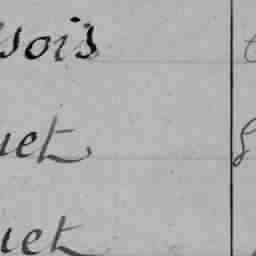 sois
uet
uet